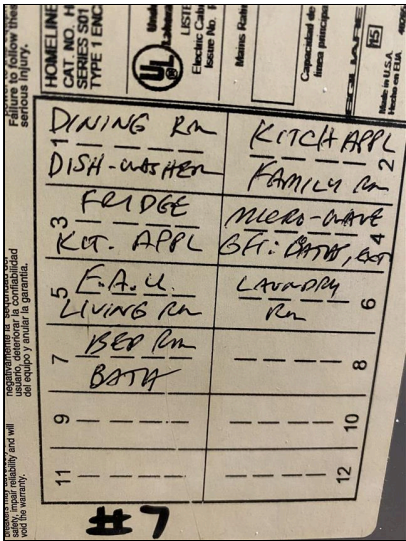 Failure to follow thes
serious injury.
HOMELINE
CAT. NO. H
SERIES S01
TYPE 1 ENC
UL
Unde
Labora
LISTE
Electric Cabi
Issue No. F
Mains Ratin
Capacidad de
línea principa
15
Made in U.S.A.
Hecho en EUA
1 DINING RM
DISH-WASHER
KITCH APPL 2
FAMILY RM
3 FRIDGE
KIT. APPL
MICRO-WAVE 4
GFI: BATHS, EXT
5 F.A.U.
LIVING RM
LAUNDRY 6
RM
7 BED RM
BATH
8
9
10
11
12
negativamente la seguridad del
usuario, deteriorar la confiabilidad
del equipo y anular la garantía.
safety, impair reliability and will
void the warranty.
#7